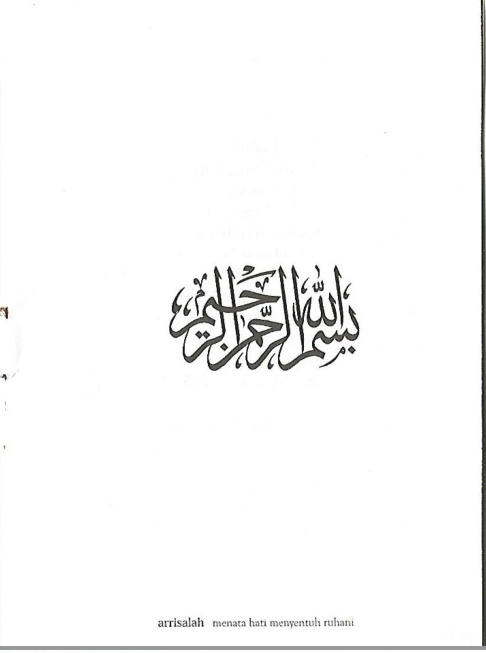 بسم الله الرحمن الرحيم
arrisalah menata hati menyentuh ruhani